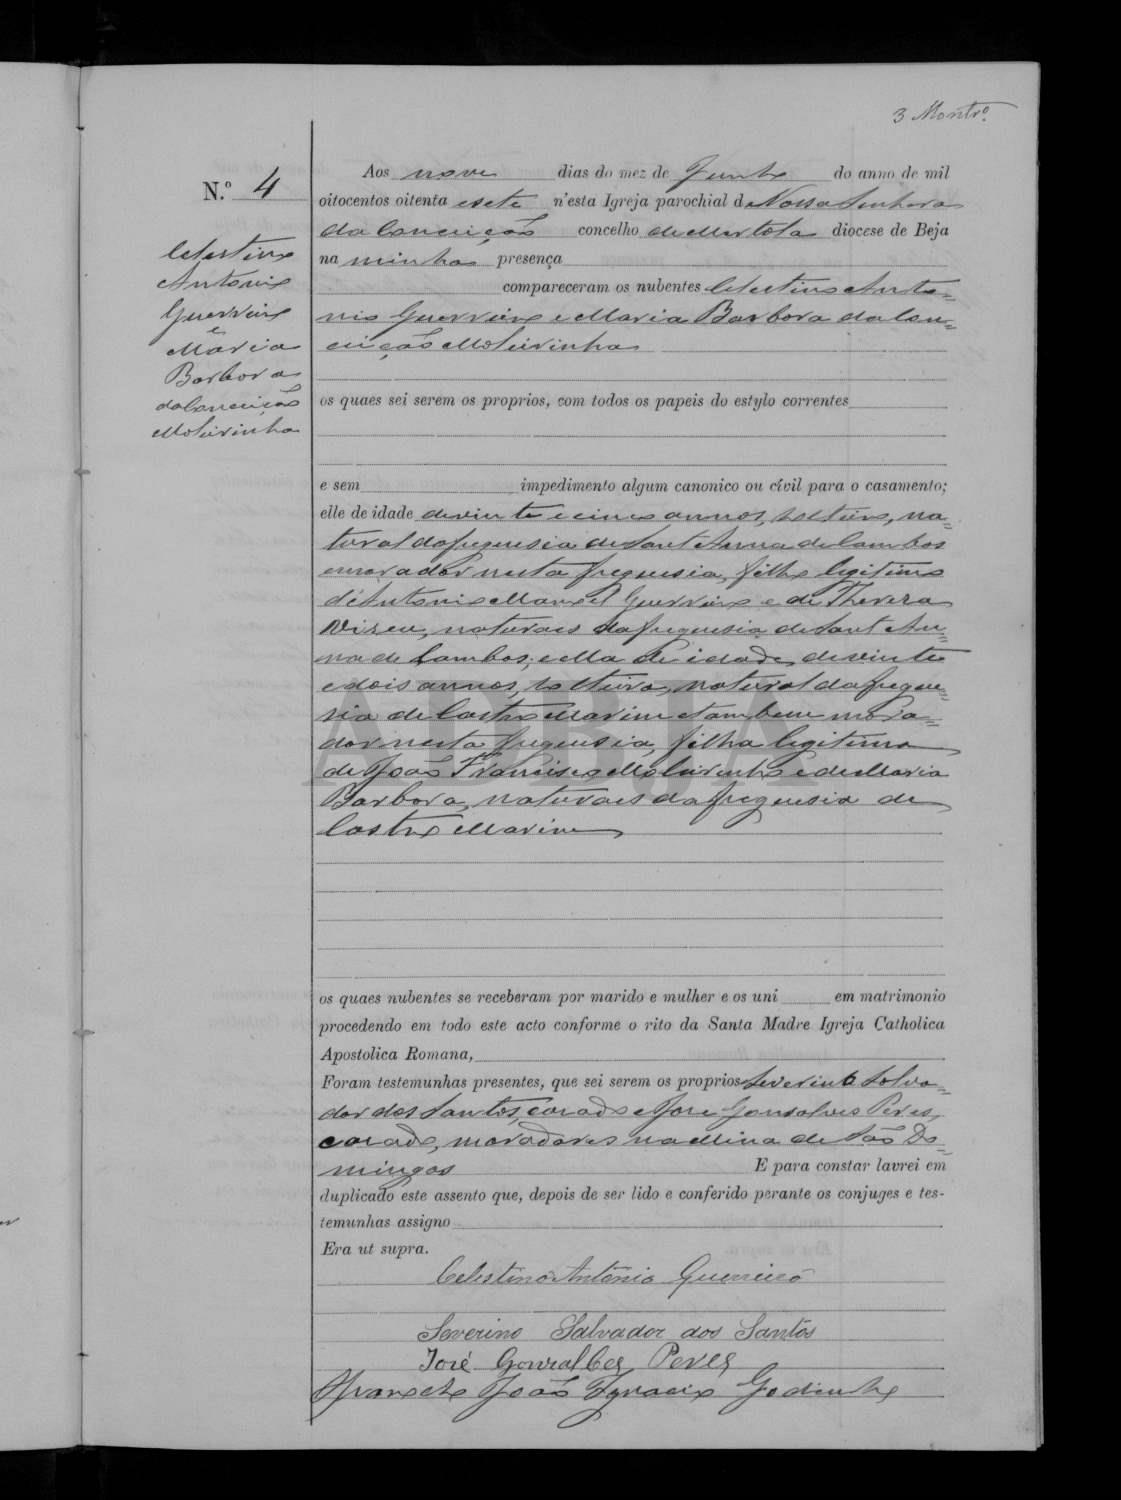 3 Montrº
N.º 4
Celestino
Antonio
Guerreiro
e
Maria
Barbora
da Conceição
Moleirinha
Aos nove dias do mez de Junho do anno de mil
oitocentos oitenta e sete n'esta Igreja parochial de Nossa Senhora
da Conceição concelho de Mertola diocese de Beja
na minha presença
compareceram os nubentes Celestino Anto=
nio Guerreiro e Maria Barbora da Con=
ceição Moleirinha
os quaes sei serem os proprios, com todos os papeis do estylo correntes
e sem impedimento algum canonico ou cívil para o casamento;
elle de idade de vinte e cinco annos, solteiro, na=
tural da freguesia de Sant Anna de Cambas
e morador nesta freguesia, filho legitimo
d'Antonio Manoel Guerreiro e de Thereza
Vizeu, naturaes da freguesia de Sant An=
na de Cambas; e ella de idade de vinte
e dois annos, solteira, natural da fregue=
sia de Castro Marim e tambem mora=
dor nesta freguesia, filha legitima
de João Francisco Moleirinho e de Maria
Barbora, naturaes da freguesia de
Castro Marim
os quaes nubentes se receberam por marido e mulher e os uni em matrimonio
procedendo em todo este acto conforme o rito da Santa Madre Igreja Catholica
Apostolica Romana,
Foram testemunhas presentes, que sei serem os proprios Severino Salva=
dor dos Santos, casado e Jose Gonsalves Peres,
casado, moradores na Mina de São Do=
mingos E para constar lavrei em
duplicado este assento que, depois de ser lido e conferido perante os conjuges e tes-
temunhas assigno
Era ut supra.
Celestino António Guerreiro
Severino Salvador dos Santos
José Gonzalbes Peres
João Ignacio Godinho
ADBJA